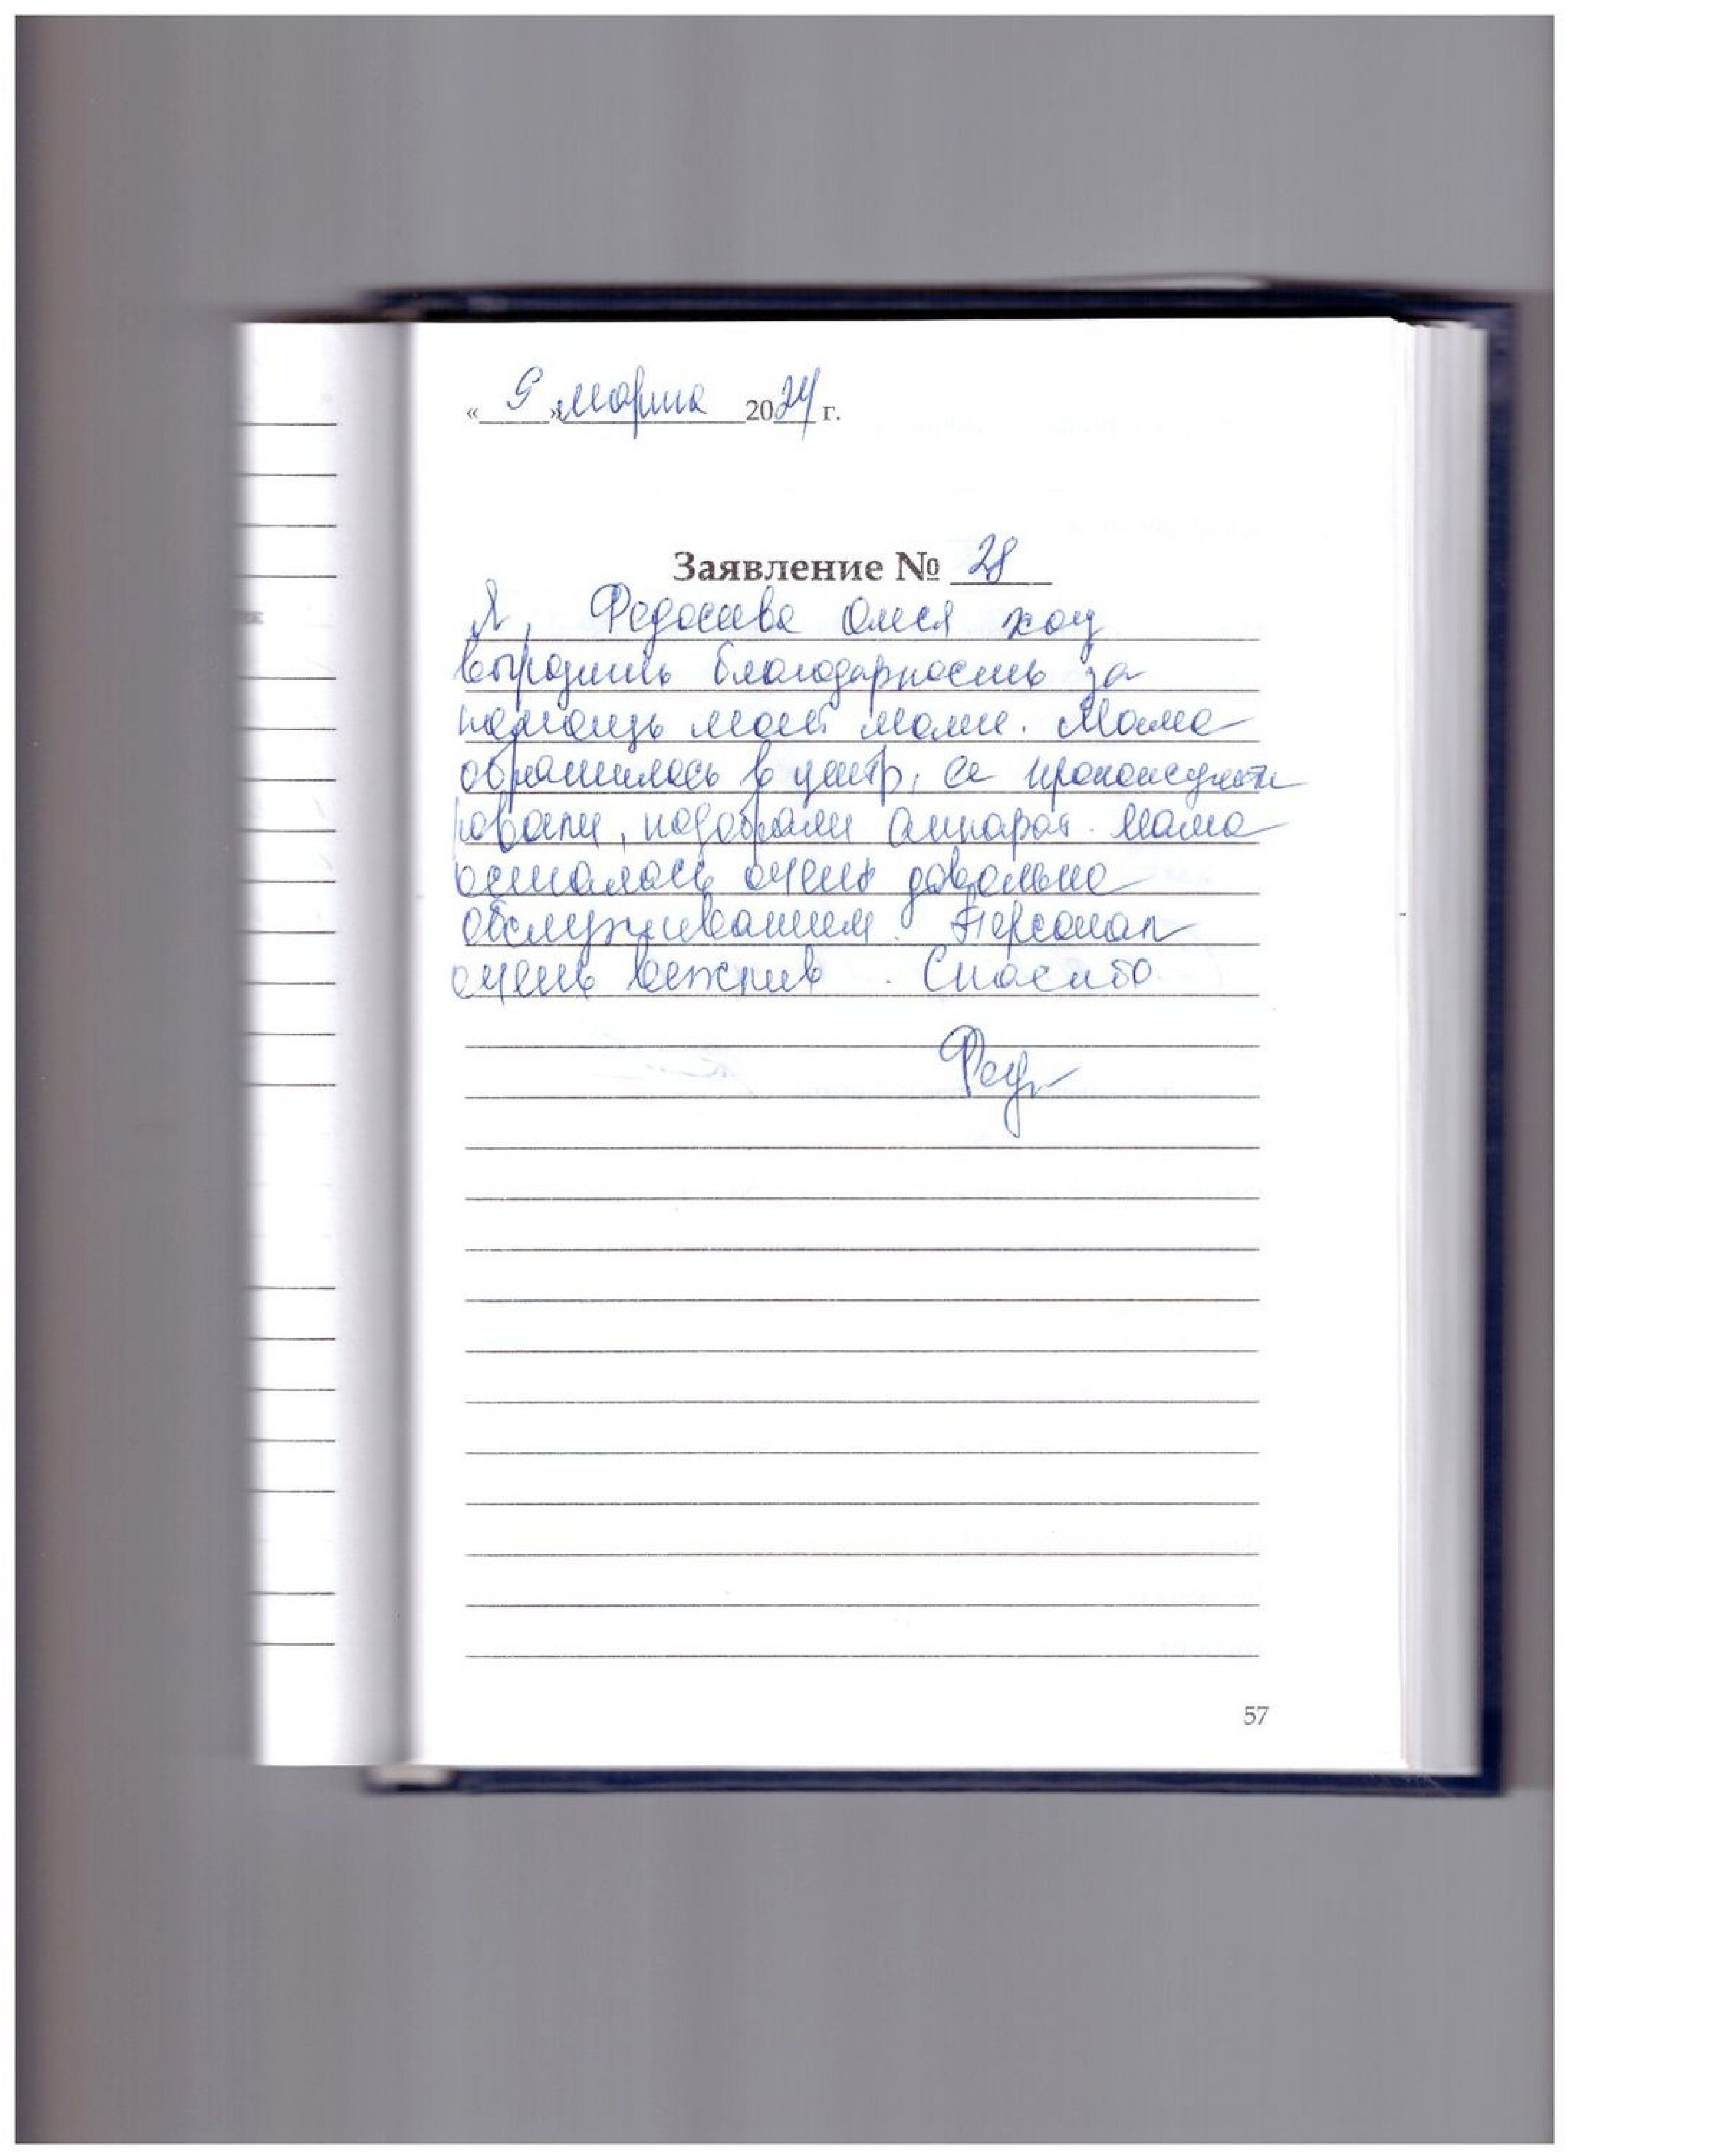 « 9 » марта 2024 г.
Заявление № 28
Я, Федосеева Олеся хочу
выразить благодарность за
помощь моей маме. Мама
обратилась в центр, ее проконсульти
ровали, подобрали аппарат. Мама
осталась очень довольна
обслуживанием. Персонал
очень вежлив. Спасибо
57